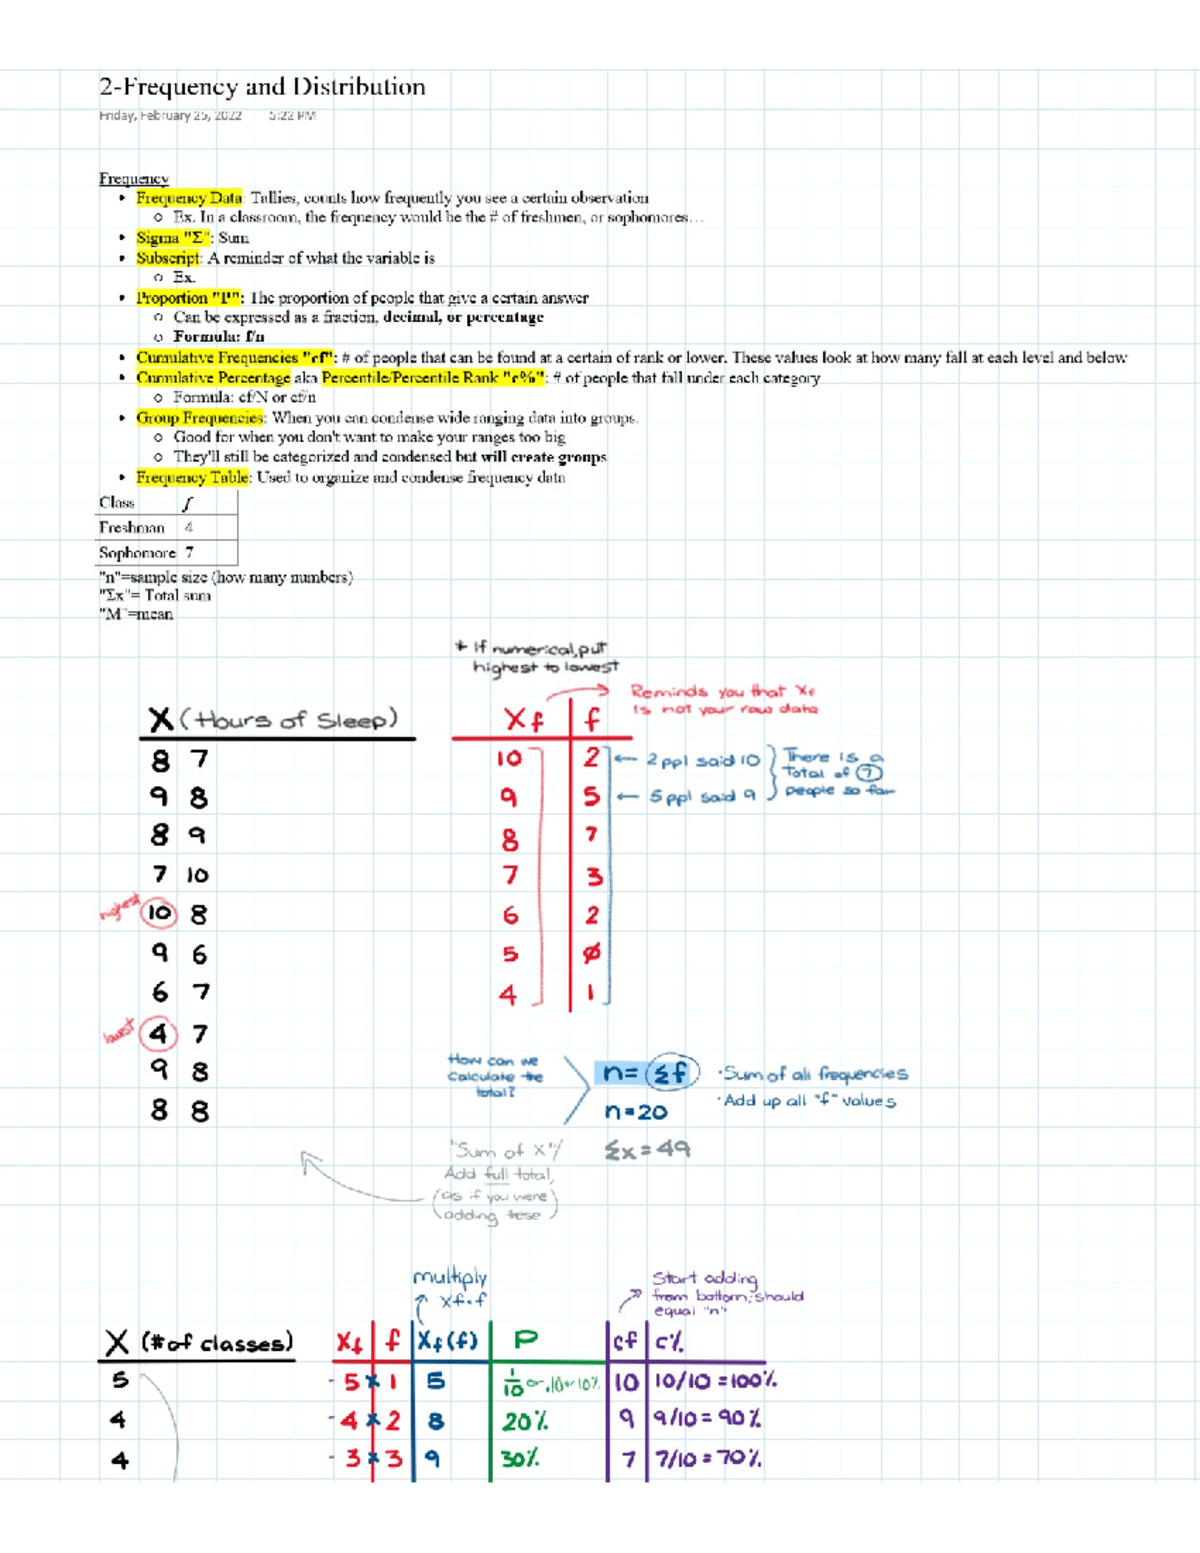 2-Frequency and Distribution
Friday, February 25, 2022 5:22 PM
Frequency
• Frequency Data: Tallies, counts how frequently you see a certain observation
○ Ex. In a classroom, the frequency would be the # of freshmen, or sophomores…
• Sigma "Σ": Sum
• Subscript: A reminder of what the variable is
○ Ex.
• Proportion "P": The proportion of people that give a certain answer
○ Can be expressed as a fraction, decimal, or percentage
○ Formula: f/n
• Cumulative Frequencies "cf": # of people that can be found at a certain of rank or lower. These values look at how many fall at each level and below
• Cumulative Percentage aka Percentile/Percentile Rank "c%": # of people that fall under each category
○ Formula: cf/N or cf/n
• Group Frequencies: When you can condense wide ranging data into groups.
○ Good for when you don't want to make your ranges too big
○ They'll still be categorized and condensed but will create groups
• Frequency Table: Used to organize and condense frequency data
Class f
Freshman 4
Sophomore 7
"n"=sample size (how many numbers)
"Σx"= Total sum
"M"=mean
* If numerical, put
highest to lowest
Reminds you that Xf
is not your raw data
X (Hours of Sleep)
8 7
9 8
8 9
7 10
highest 10 8
9 6
6 7
lowest 4 7
9 8
8 8
Xf f
10 2 ← 2 ppl said 10
9 5 ← 5 ppl said 9
8 7
7 3
6 2
5 0
4 1
There is a
total of 7
people so far
How can we
Calculate the
total?
n= Σf
n=20
Σx=49
·Sum of all frequencies
·Add up all "f" values
"Sum of X"/
Add full total,
(as if you were
adding these)
multiply
Xf·f
Start adding
from bottom; should
equal "n"
X (# of classes)
5
4
4
Xf f Xf(f) P cf c%
- 5 x 1 5 1/10 or .10 or 10% 10 10/10 = 100%
- 4 x 2 8 20% 9 9/10 = 90%
- 3 x 3 9 30% 7 7/10 = 70%